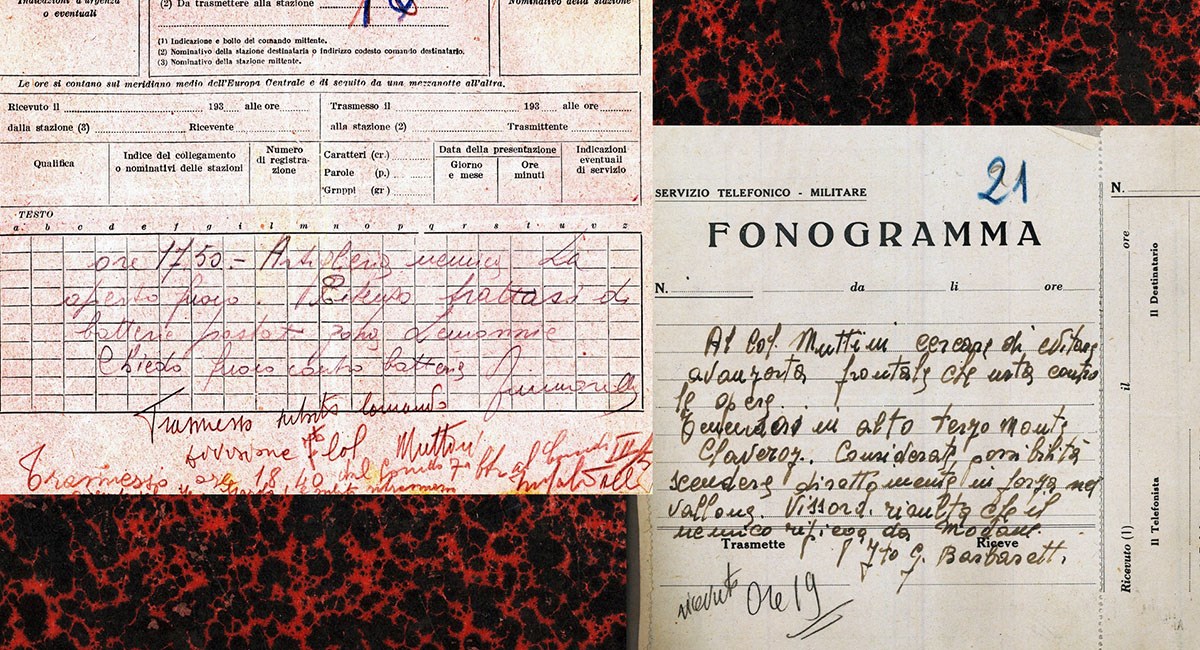 Indicazioni d'urgenza
o eventuali
(2) Da trasmettere alla stazione
Nominativo della stazione
(1) Indicazione e bollo del comando mittente.
(2) Nominativo della stazione destinataria o indirizzo codesto comando destinatario.
(3) Nominativo della stazione mittente.
Le ore si contano sul meridiano medio dell'Europa Centrale e di seguito da una mezzanotte all'altra.
Ricevuto il 193 alle ore
Trasmesso il 193 alle ore
dalla stazione (3) Ricevente
alla stazione (2) Trasmittente
Qualifica
Indice del collegamento
o nominativi delle stazioni
Numero
di registra-
zione
Caratteri (cr.)
Parole (p.)
Gruppi (gr.)
Data della presentazione
Giorno
e mese
Ore
minuti
Indicazioni
eventuali
di servizio
TESTO
a b c d e f g i l m n o p q r s t u v z
ore 1750 - Artiglieria nemica ha
aperto fuoco. Ritengo trattasi di
batterie postate zona
Chiedo fuoco contro batteria
Trasmesso subito comando
divisione Col Muttini
Trasmesso ore 18,40
SERVIZIO TELEFONICO - MILITARE
21
FONOGRAMMA
N. da li ore
Al Col. Muttini cercare di evitare
avanzata frontale che urta contro
le opere.
Tenendosi in alto verso monte
Claveroz. Considerate possibilità
scendere direttamente in forza nel
vallone. Vissord. risulta che il
nemico ripiega da Modane.
Trasmette Riceve
f/to G. Barbasetti
ricevuto Ore 19
N.
ore
il
Ricevuto (1)
Il Destinatario
Il Telefonista